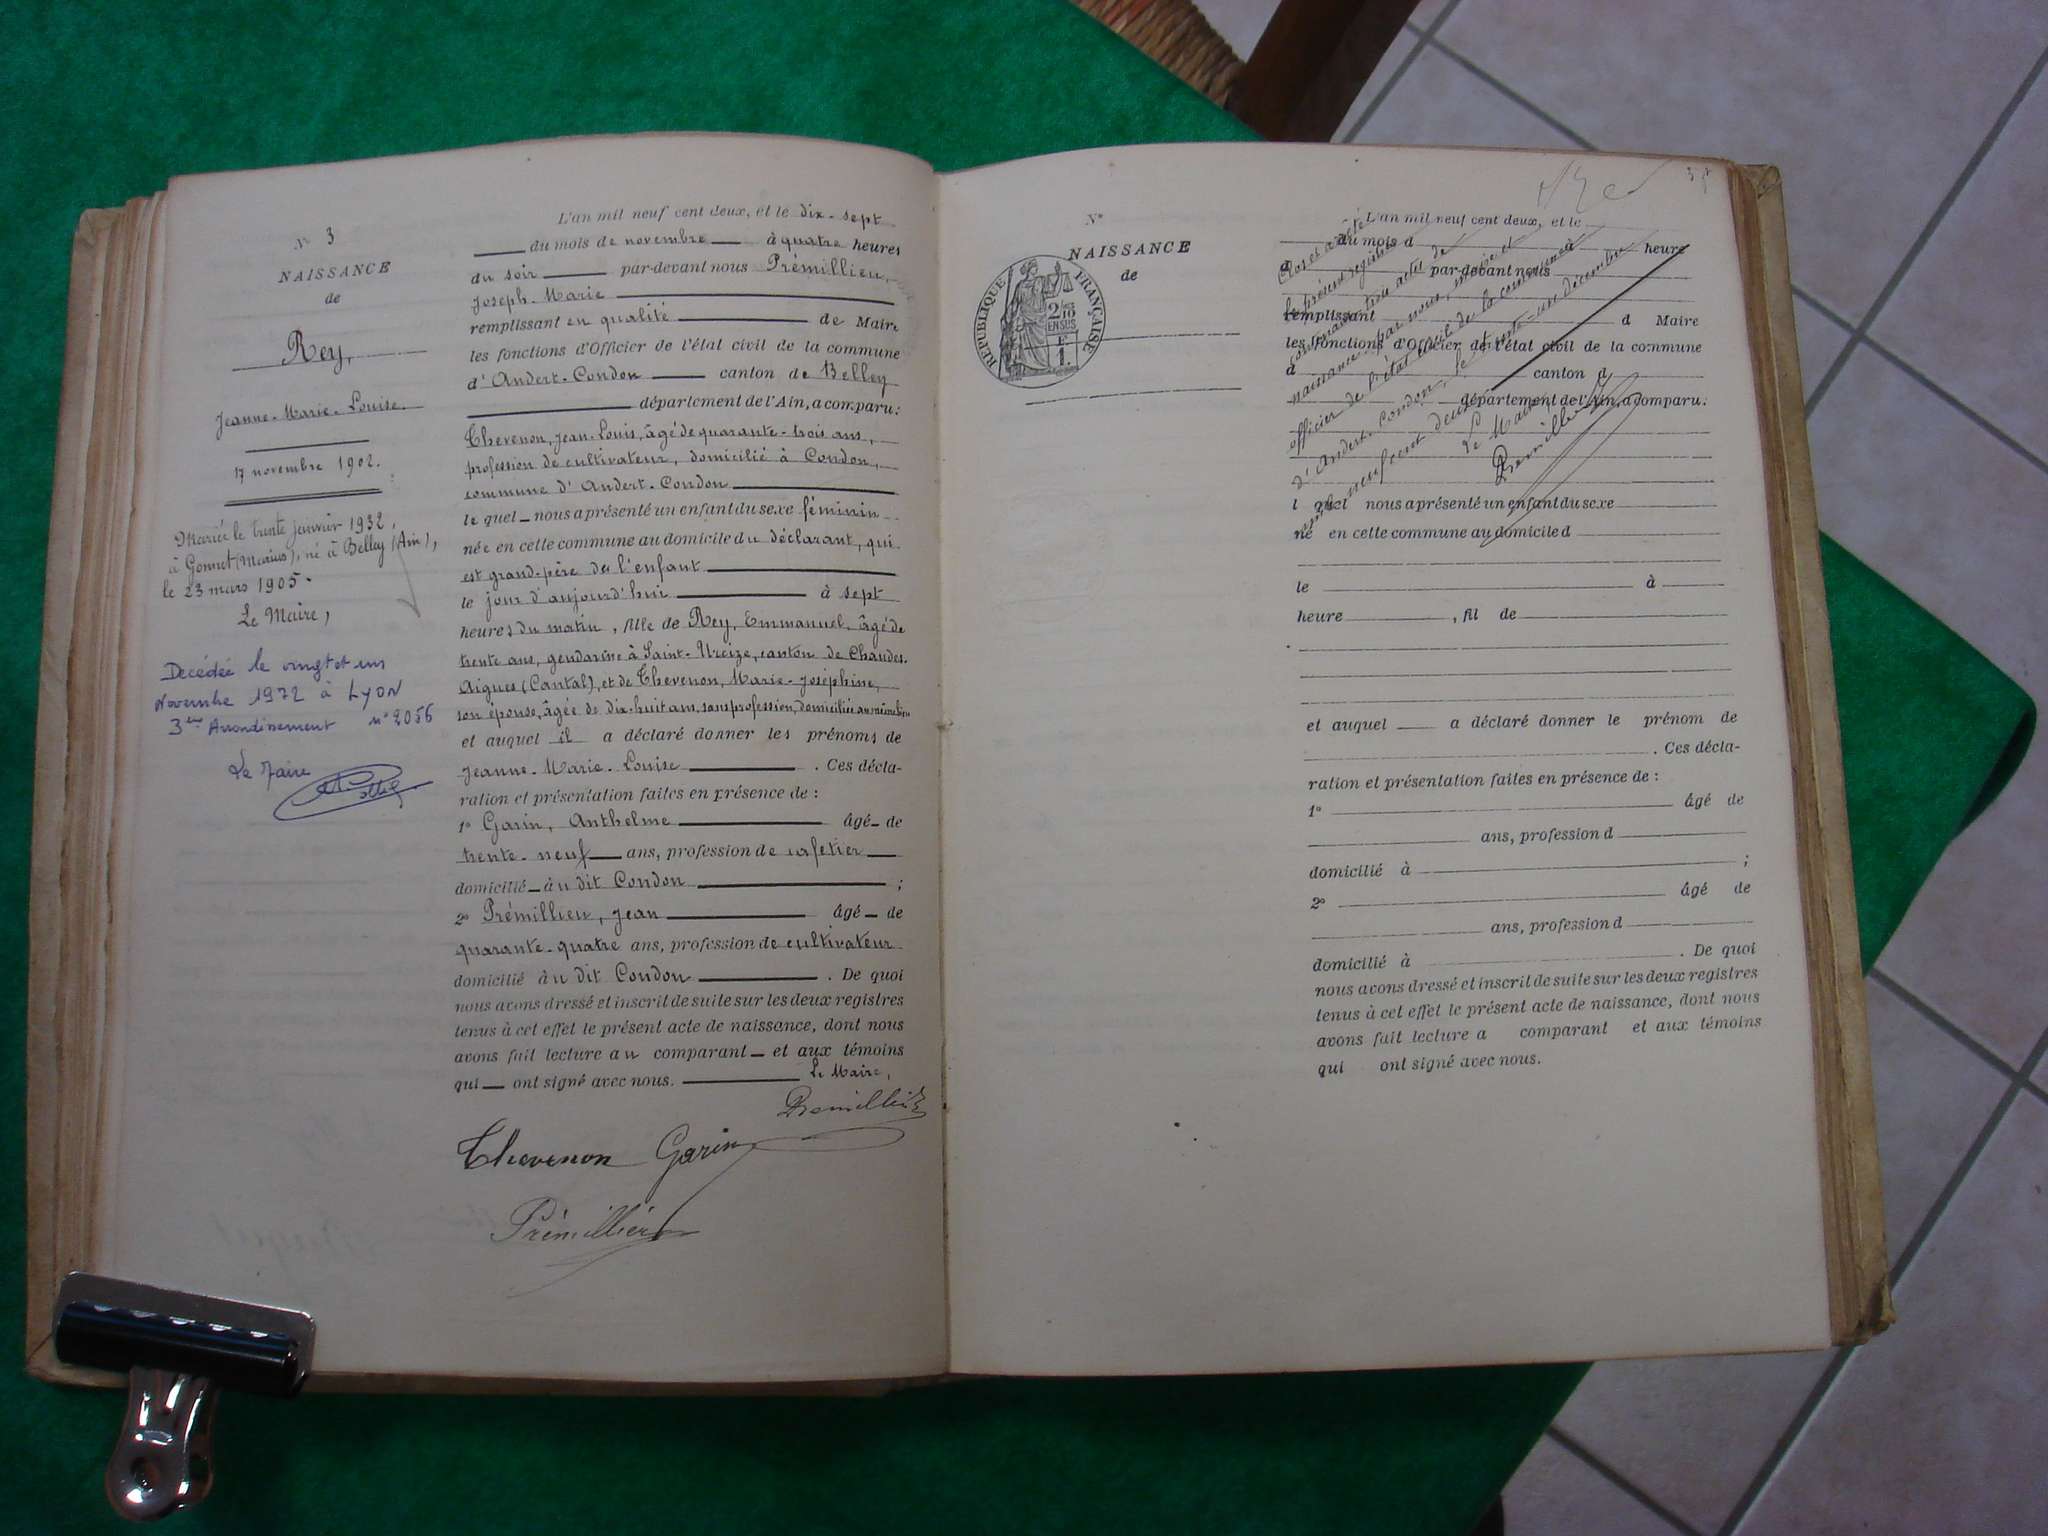 N° 3
NAISSANCE
de
Rey,
Jeanne-Marie-Louise.
17 novembre 1902.
Mariée le trente janvier 1932,
à Gonnet (Marius), né à Belley (Ain),
le 23 mars 1905.
Le Maire,
Decédée le vingt et un
Novembre 1972 à LYON
3ème Arrondissement n° 2056
Le Maire
L'an mil neuf cent deux, et le dix-sept
du mois de novembre à quatre heures
du soir par-devant nous Prémillieu,
Joseph-Marie
remplissant en qualité de Maire
les fonctions d'Officier de l'état civil de la commune
d'Andert-Condon canton de Belley
département de l'Ain, a comparu:
Thevenon, Jean-Louis, âgé de quarante-trois ans,
profession de cultivateur, domicilié à Condon,
commune d'Andert-Condon
le quel nous a présenté un enfant du sexe féminin
née en cette commune au domicile du déclarant, qui
est grand-père de l'enfant
le jour d'aujourd'hui à sept
heures du matin, fille de Rey, Emmanuel, âgé de
trente ans, gendarme à Saint-Urcize, canton de Chaudes-
Aigues (Cantal), et de Thevenon, Marie-Joséphine,
son épouse, âgée de dix-huit ans, sans profession, domiciliée au même lieu
et auquel il a déclaré donner les prénoms de
Jeanne-Marie-Louise. Ces décla-
ration et présentation faites en présence de :
1° Garin, Anthelme âgé de
trente-neuf ans, profession de cafetier
domicilié au dit Condon ;
2° Prémillieu, Jean âgé de
quarante-quatre ans, profession de cultivateur
domicilié au dit Condon. De quoi
nous avons dressé et inscrit de suite sur les deux registres
tenus à cet effet le présent acte de naissance, dont nous
avons fait lecture au comparant et aux témoins
qui ont signé avec nous. Le Maire,
Premillieu
Thevenon Garin
Prémillieu
N°
NAISSANCE
de
RÉPUBLIQUE FRANÇAISE
2/10
EN SUS
1 F
L'an mil neuf cent deux, et le
du mois d à heure
d par-devant nous
remplissant d Maire
les fonctions d'Officier de l'état civil de la commune
d canton d
département de l'Ain, a comparu:
l quel nous a présenté un enfant du sexe
né en cette commune au domicile d
le à
heure , fil de
et auquel a déclaré donner le prénom de
. Ces décla-
ration et présentation faites en présence de :
1° âgé de
ans, profession d
domicilié à ;
2° âgé de
ans, profession d
domicilié à . De quoi
nous avons dressé et inscrit de suite sur les deux registres
tenus à cet effet le présent acte de naissance, dont nous
avons fait lecture a comparant et aux témoins
qui ont signé avec nous.
Clos et arrêté
le présent registre
contenant trois actes de
naissance par nous, maire et
officier de l'état civil de la commune
d'Andert-Condon, le trente-un décembre
mil neuf cent deux
Le Maire
Premillieu